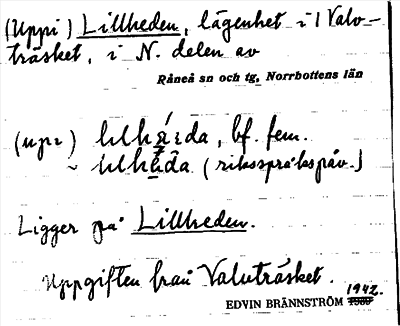 (Uppi) Lillheden, lägenhet i Valv-
träsket, i N. delen av
Råneå sn och tg, Norrbottens län
bf. fem.
~ (riksspråkspåv.)
Ligger på Lillheden.
Uppgiften från Valvträsket.
1942.
EDVIN BRÄNNSTRÖM